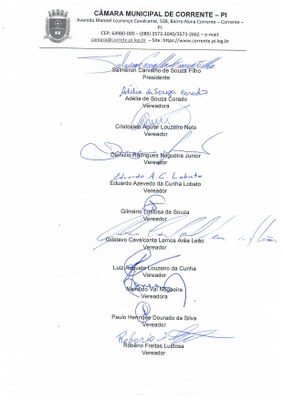 CÂMARA MUNICIPAL DE CORRENTE – PI
Avenida Manoel Lourenço Cavalcante, 538, Bairro Nova Corrente – Corrente –
PI
CEP: 64980-000 – (089) 3573-2662 – e-mail
camara@corrente.pi.leg.br – Site: https://www.corrente.pi.leg.br
Salmeron Carvalho de Souza Filho
Presidente
Adélia de Souza Corado
Adélia de Souza Corado
Vereadora
Cristovam Aguiar Louzeiro Neto
Vereador
Dionizio Rodrigues Nogueira Junior
Vereador
Eduardo A. C. Lobato
Eduardo Azevedo da Cunha Lobato
Vereador
Gilmário Lustosa de Souza
Vereador
Gustavo Cavalcante Lemos Arêa Leão
Vereador
Luiz Augusto Louzeiro da Cunha
Vereador
Val Nogueira
Vereadora
Paulo Henrique Dourado da Silva
Vereador
Robério
Robério Freitas Lustosa
Vereador